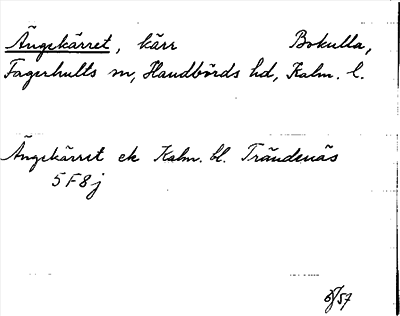 Ängekärret, kärr Bokulla,
Fagerhults sn, Handbörds hd, Kalm. l.
Ängekärret ek Kalm. bl. Trändenäs
5F8j
/57